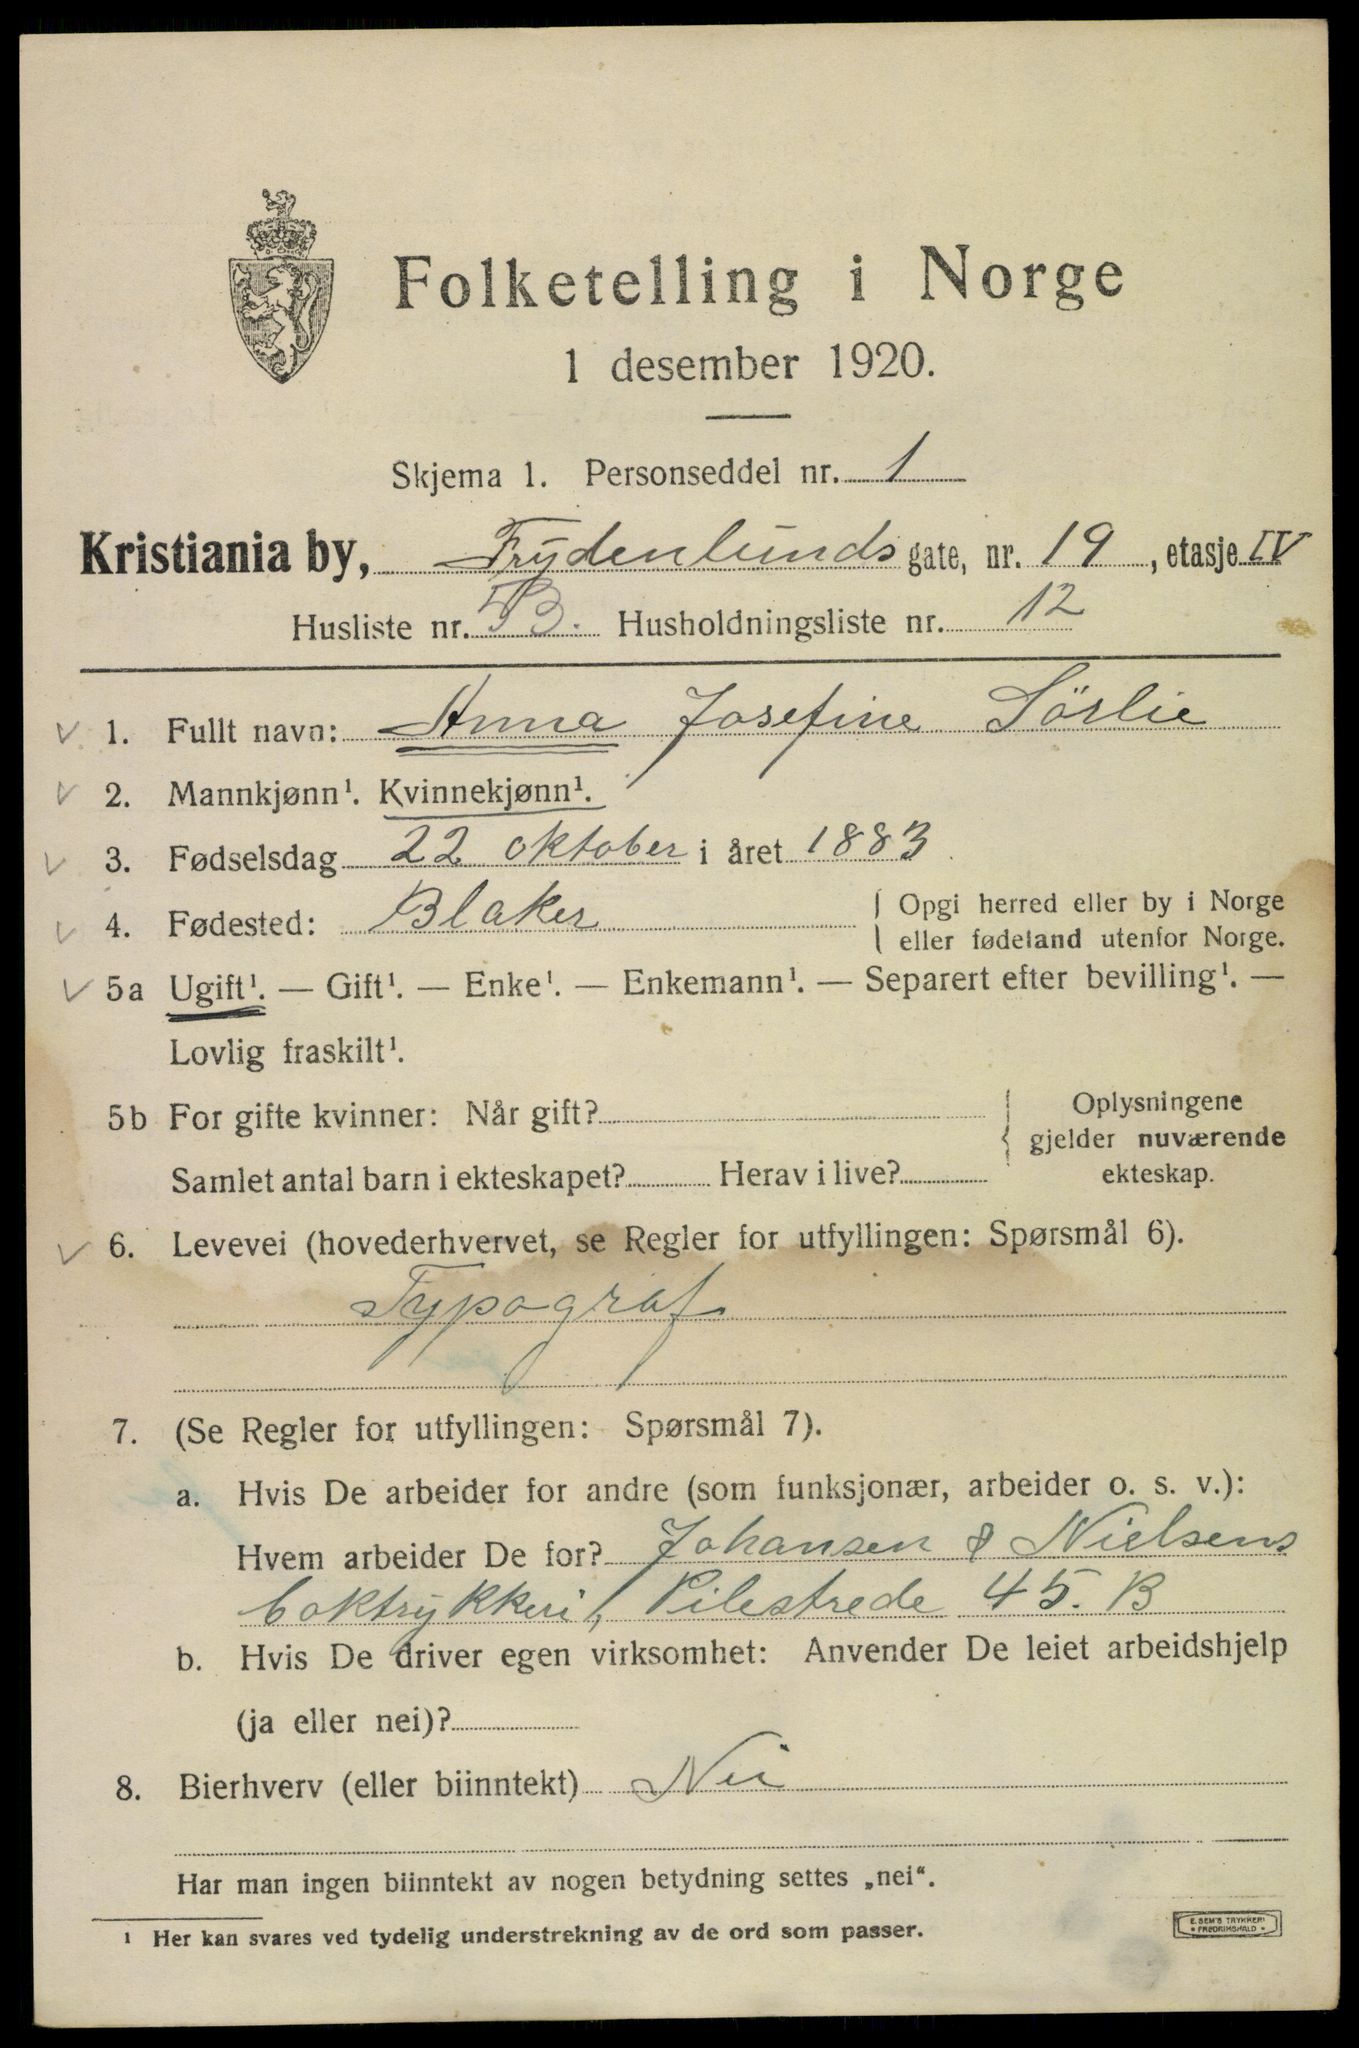 Folketelling i Norge
1 desember 1920.
Skjema 1. Personseddel nr. 1
Kristiania by, Frydenlunds gate, nr. 19, etasje IV
Husliste nr. B. Husholdningsliste nr. 12
1. Fullt navn: Anna Josefine Sörlie
2. Mannkjønn¹. Kvinnekjønn¹.
3. Fødselsdag 22 oktober i året 1883
4. Fødested: Blaker
Opgi herred eller by i Norge
eller fødeland utenfor Norge.
5a Ugift¹. — Gift¹. — Enke¹. — Enkemann¹. — Separert efter bevilling¹. —
Lovlig fraskilt¹.
5b For gifte kvinner: Når gift?
Samlet antal barn i ekteskapet? Herav i live?
Oplysningene
gjelder nuværende
ekteskap.
6. Levevei (hovederhvervet, se Regler for utfyllingen: Spørsmål 6).
Typograf
7. (Se Regler for utfyllingen: Spørsmål 7).
a. Hvis De arbeider for andre (som funksjonær, arbeider o. s. v.):
Hvem arbeider De for? Johansen & Nielsens
boktrykkeri, Pilestrede 45. B
b. Hvis De driver egen virksomhet: Anvender De leiet arbeidshjelp
(ja eller nei)?
8. Bierhverv (eller biinntekt) Nei
Har man ingen biinntekt av nogen betydning settes „nei“.
¹ Her kan svares ved tydelig understrekning av de ord som passer.
E. SEM'S TRYKKERI
• FREDRIKSHALD •